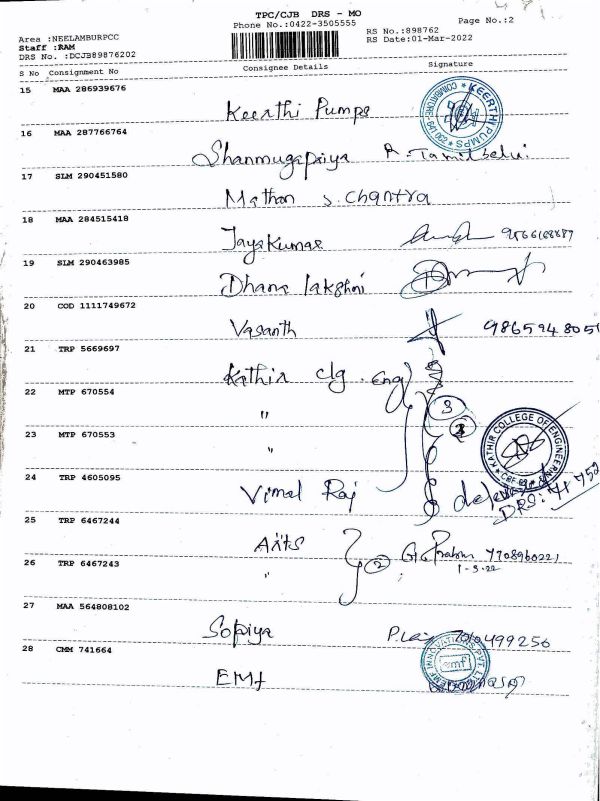 TPC/CJB DRS - MO
Phone No.:0422-3505555
Page No.:2
Area :NEELAMBURPCC
RS No.:898762
Staff :RAM
RS Date:01-Mar-2022
DRS No. :DCJB89876202
S No Consignment No Consignee Details Signature
15 MAA 286939676
Keerthi Pumps
KEERTHI PUMPS * COIMBATORE
16 MAA 287766764
Shanmugapriya R. Tamilselvi
17 SLM 290451580
Mathan S. Chantra
18 MAA 284515418
Jayakumar
19 SLM 290463985
Dhana lakshmi
20 COD 1111749672
Vasanth 986594805
21 TRP 5669697
Kathir clg. Eng
22 MTP 670554
" 3
23 MTP 670553
"
KATHIR COLLEGE OF ENGINEERING
24 TRP 4605095
Vimal Raj
DRS:
25 TRP 6467244
Arits 2 7708960221
26 TRP 6467243
" 1-3-22
27 MAA 564808102
Sopiya 7010499256
28 CMM 741664
EMF
emf